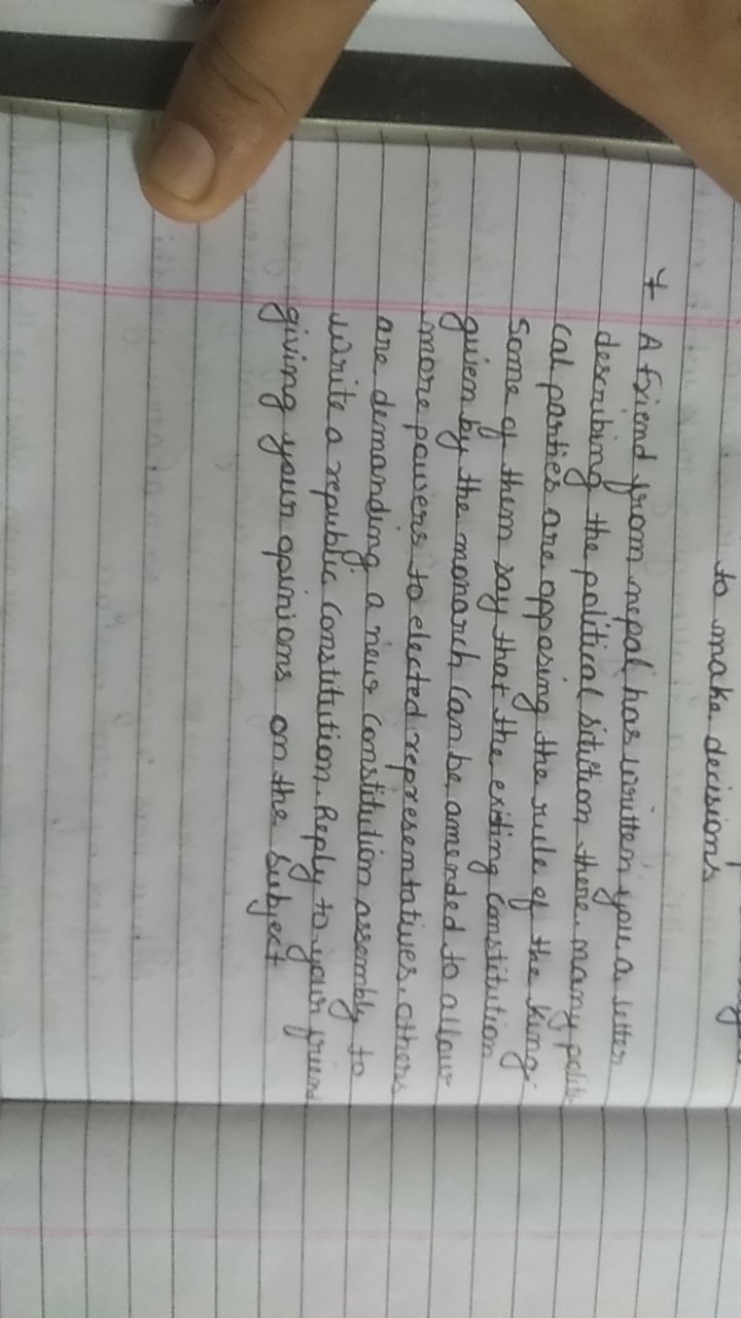 to make decisions
7 A friend from nepal has written you a letter
describing the political sitution there. many politi
cal parties are opposing the rule of the king.
Some of them say that the existing constitution
given by the monarch can be amended to allow
more powers to elected representatives. others
are demanding a new constitution assembly to
write a republic constitution. Reply to your friend
giving your opinions on the subject